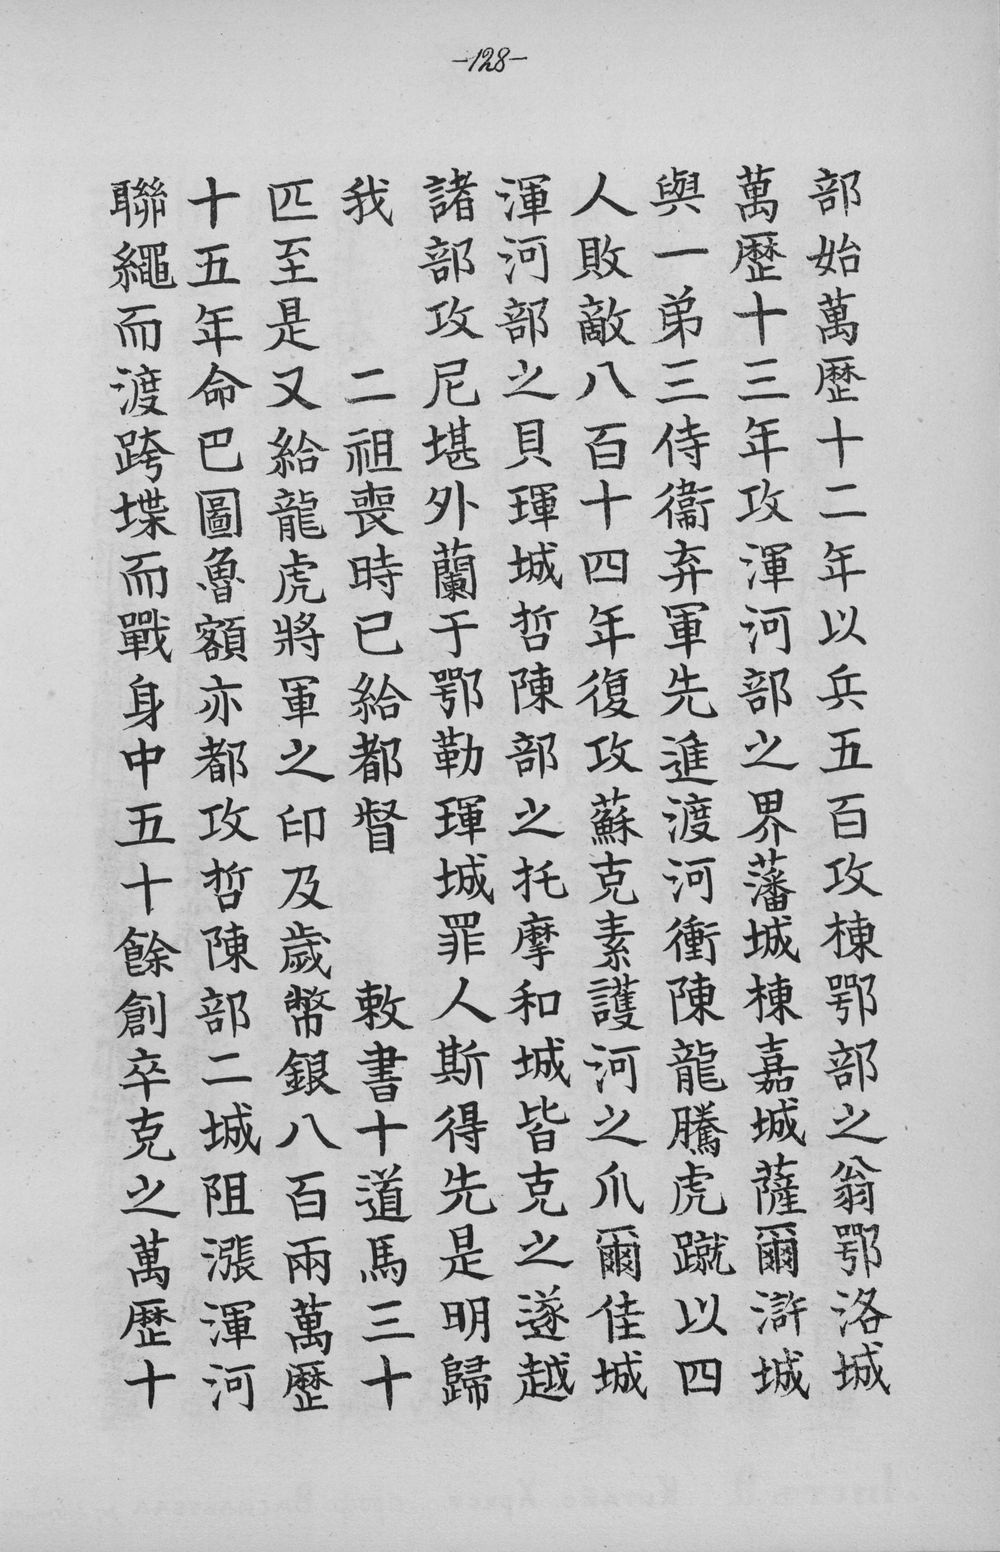 -128-
部始萬歷十二年以兵五百攻棟鄂部之翁鄂洛城
萬歷十三年攻渾河部之界藩城棟嘉城薩爾滸城
與一弟三侍衞弃軍先進渡河衝陳龍騰虎蹴以四
人敗敵八百十四年復攻蘇克素護河之爪爾佳城
渾河部之貝琿城哲陳部之托摩和城皆克之遂越
諸部攻尼堪外蘭于鄂勒琿城罪人斯得先是明歸
我 二祖喪時已給都督 敕書十道馬三十
匹至是又給龍虎將軍之印及歲幣銀八百兩萬歷
十五年命巴圖魯額亦都攻哲陳部二城阻漲渾河
聯繩而渡跨堞而戰身中五十餘創卒克之萬歷十